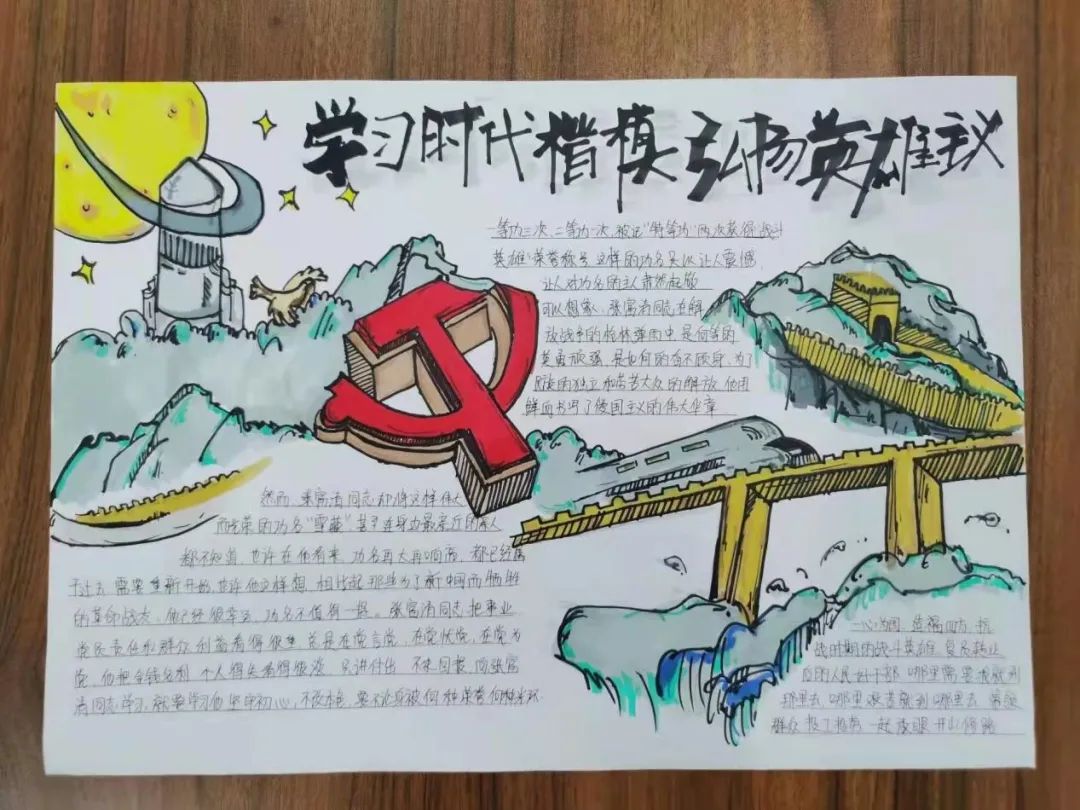 学习时代楷模 弘扬英雄主义
一等功三次、二等功一次,被记"特等功"两次获得战斗
英雄"荣誉称号,这样的功名足以让人震憾,
让人对功名的主人肃然起敬
可以想象,张富清同志在解
放战争的枪林弹雨中是何等的
英勇顽强,是如何的奋不顾身,为了
民族的独立和劳苦大众的解放,他用
鲜血书写了爱国主义的伟大华章
然而,张富清同志却将这样伟大
而光荣的功名"雪藏",甚至连身边最亲近的家人
都不知道,也许在他看来,功名再大再响亮,都已经属
于过去,需要重新开始,也许他这样想,相比起那些为了新中国而牺牲
的革命战友,他已经很幸运,功名不值得一提。张富清同志把事业
党民责任和群众利益看得很重,总是在党言党,在党忧党,在党为
党,他把金钱名利、个人得失看得很淡,只讲付出,不求回报,向张富
清同志学习,就要学习他坚守初心,不改本色,
一心为国,造福四方,抗
战时期的战斗英雄,复员转业
后的人民好干部,哪里需要我就到
那里去,哪里艰苦就到哪里去,带领
群众 一起 开山修路